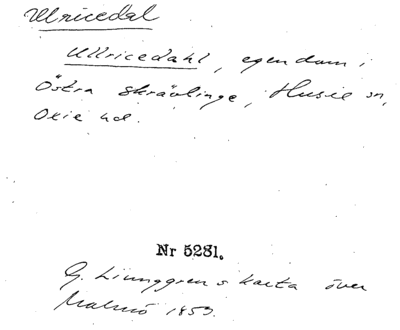 Ulricedal
Ullricedahl, egendom i
Östra Skrävlinge, Husie sn,
Oxie hd.
Nr 5281.
G. Ljunggrens karta över
Malmö 1853.